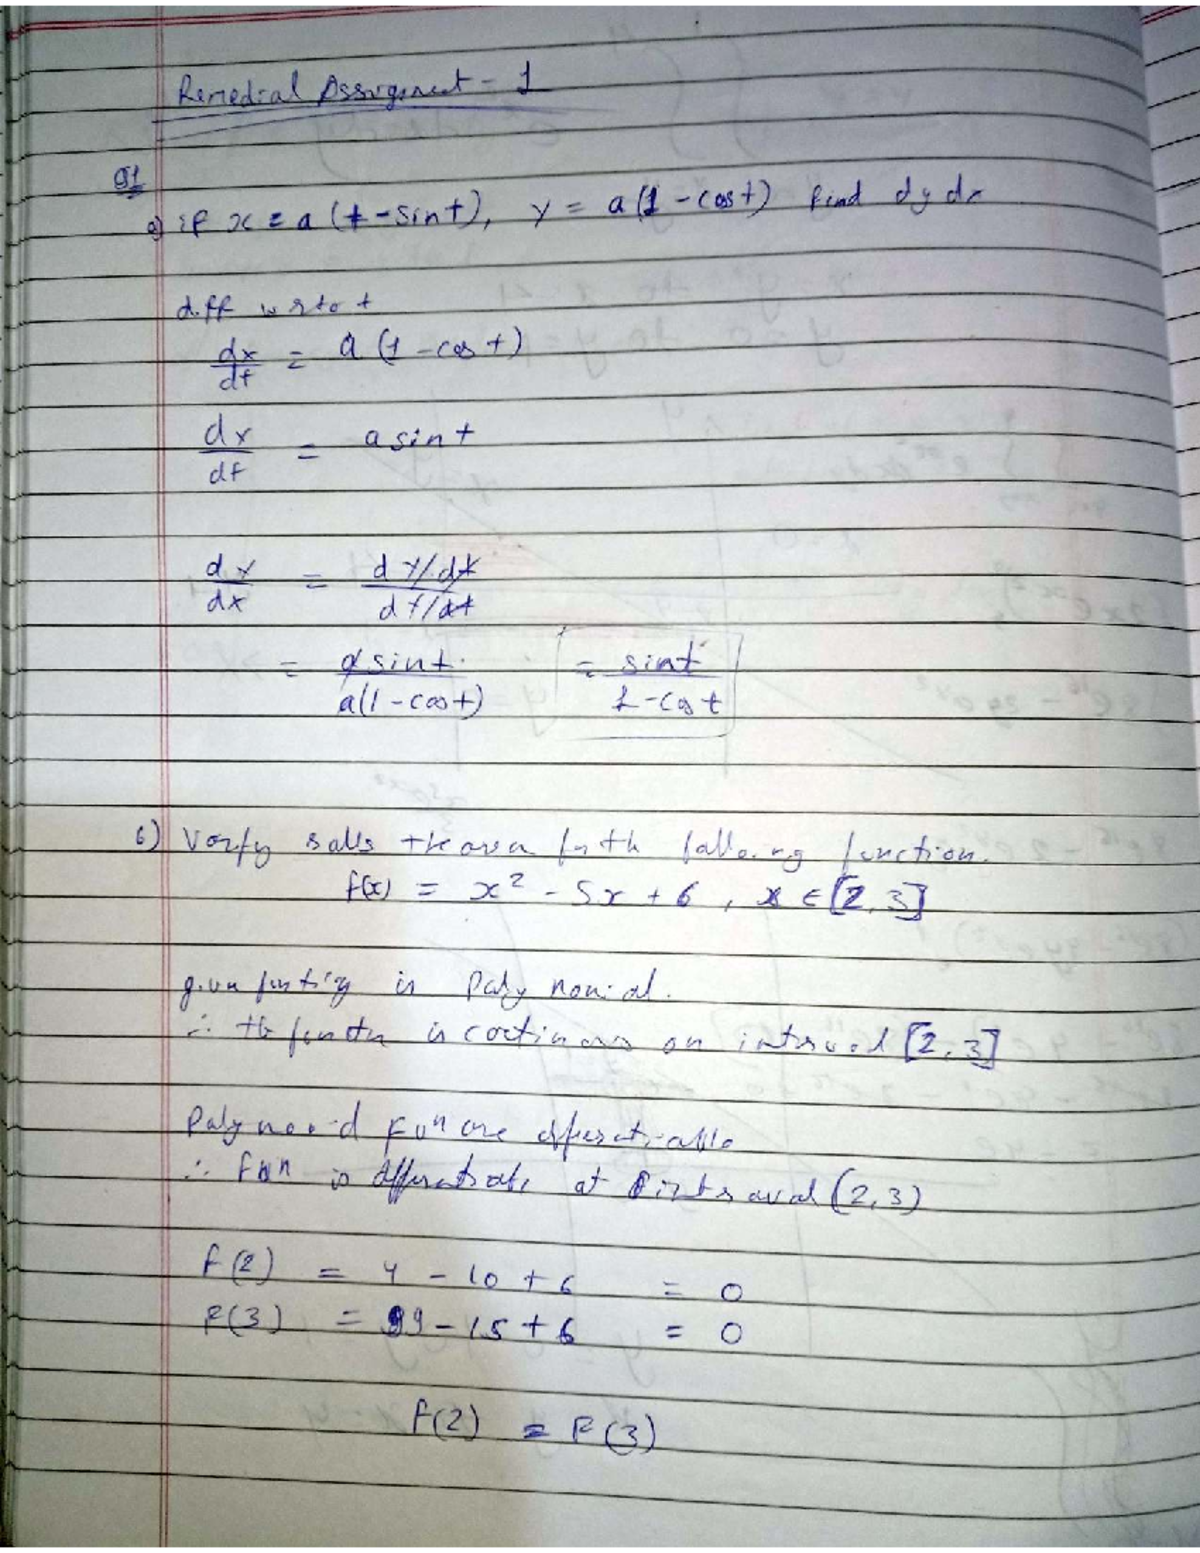 Remedial Assignment - 1
Q1
a) if x = a (t - sint), y = a(1 - cost) find dy dx
diff w r to t
dx/dt = a (1 - cos t)
dy/dt = a sin t
dy/dx = dy/dt / dt/dt
= a sin t / a(1 - cost) = sint / 1 - cos t
b) Verify rolls theorem for th following function.
f(x) = x² - 5x + 6 , x ∈ [2, 3]
given function is Polynomial.
∴ the functn is continuous on interval [2, 3]
Polynomial Fuⁿ are differentiable
∴ Fuⁿ is differentiable at interval (2, 3)
f(2) = 4 - 10 + 6 = 0
F(3) = 9 - 15 + 6 = 0
f(2) = F(3)